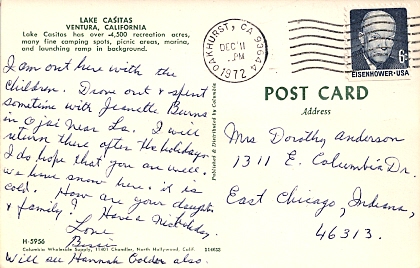 LAKE CASITAS
VENTURA, CALIFORNIA
Lake Casitas has over 4,500 recreation acres,
many fine camping spots, picnic areas, marina,
and launching ramp in background.
I am out here with the
children. Drove out & spent
sometime with Jeanette Burns
in Ojai near La. I will
return there after the holidays
I do hope that you are well.
we have snow here. it is
cold. How are your daughter
& family? Have a nice holiday.
Love
Bessie
H-5956
Columbia Wholesale Supply, 11401 Chandler, North Hollywood, Calif.
Will see Hannah also.
Published & Distributed by Columbia
OAKHURST, CA 93644
DEC 11
PM
1972
EISENHOWER·USA
6c
POST CARD
Address
Mrs Dorothy Anderson
1311 E. Columbia Dr.
East Chicago, Indiana,
46313.